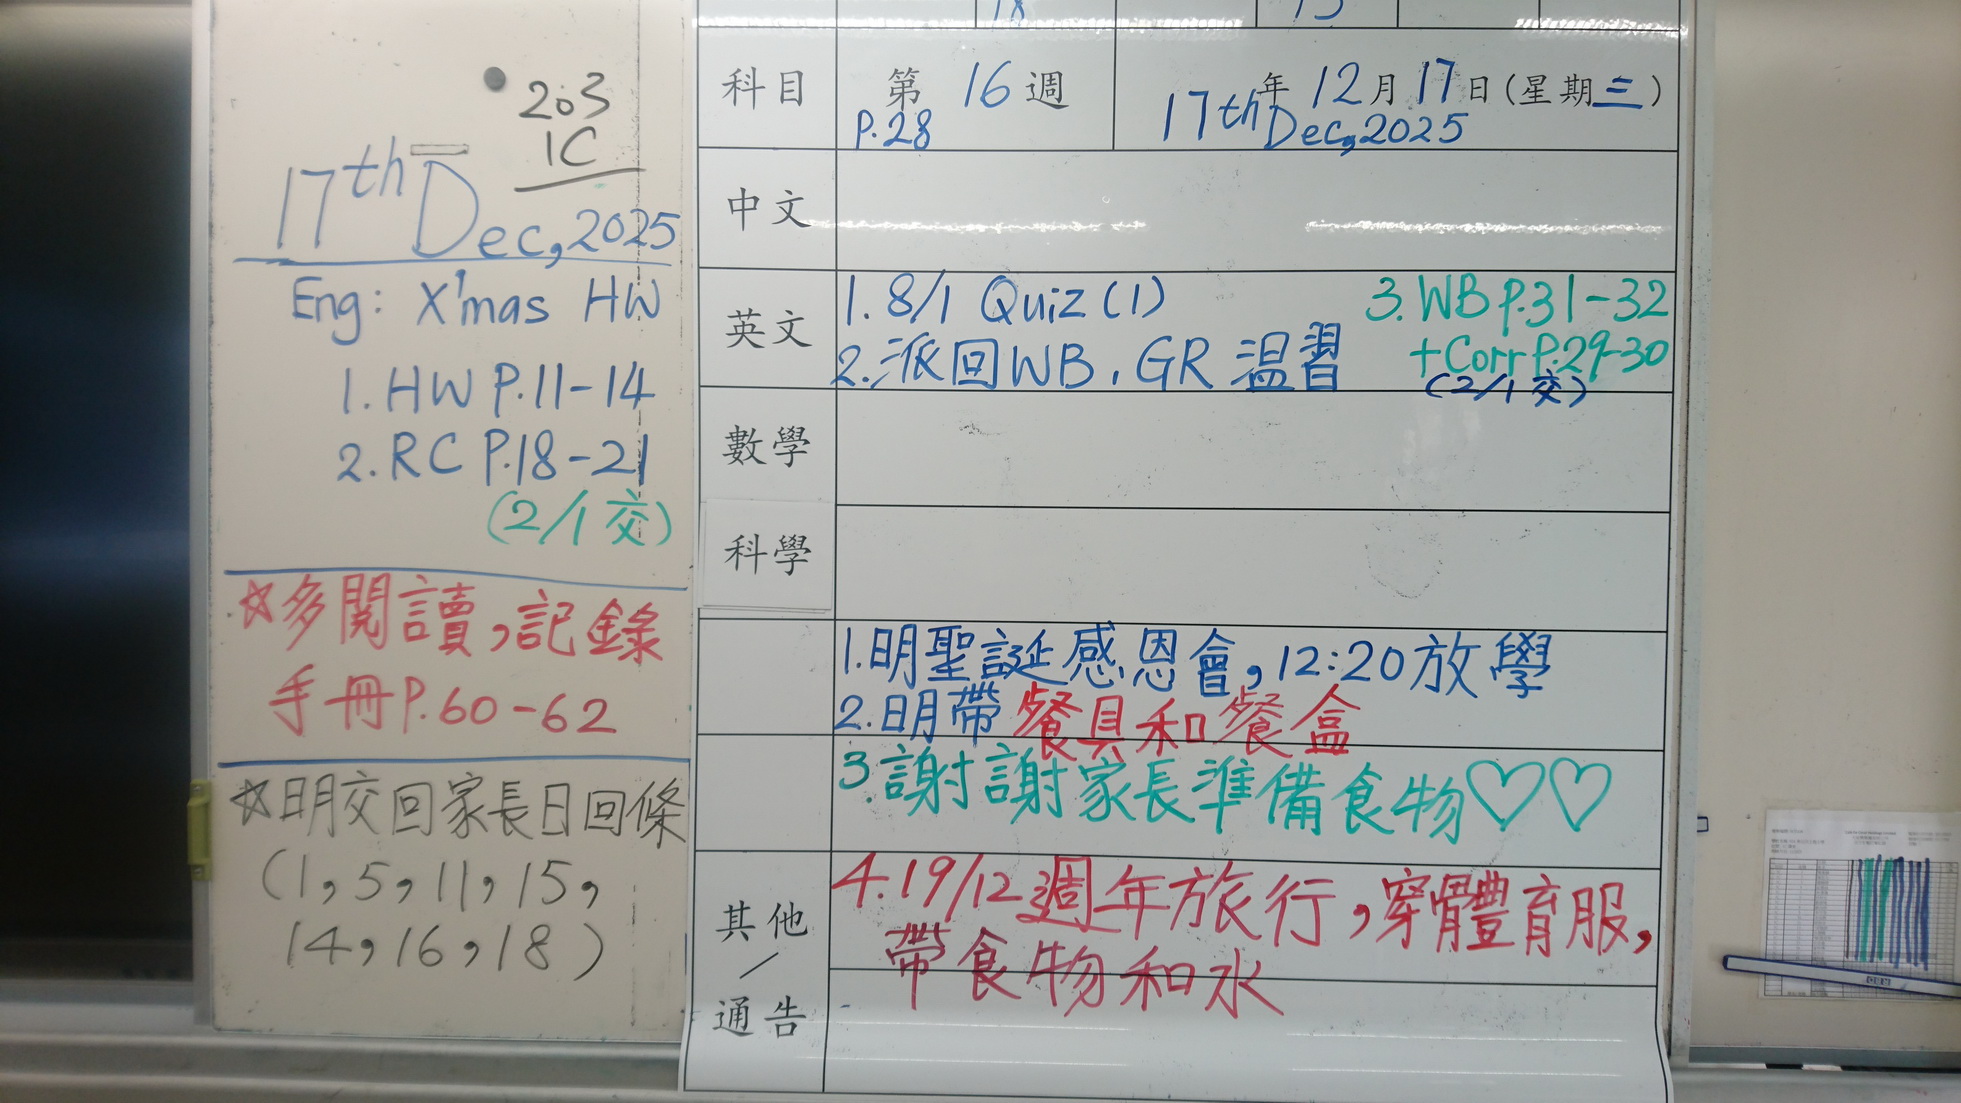 203
1C
17th Dec, 2025
Eng: X'mas HW
1. HW P.11-14
2. RC P.18-21
(2/1 交)
☆多閱讀,記錄
手冊P.60-62
☆明交回家長日回條
(1,5,11,15,
14,16,18)
科目 第 16 週 年 12月17日(星期三)
P.28 17th Dec, 2025
中文
英文
1. 8/1 Quiz (1)
2. 派回WB, GR 溫習
3. WB P.31-32
+Corr P.29-30
(2/1 交)
數學
科學
1.明聖誕感恩會,12:20放學
2.明帶餐具和餐盒
3.謝謝家長準備食物♡♡
其他
/
通告
4.19/12週年旅行,穿體育服,
帶食物和水